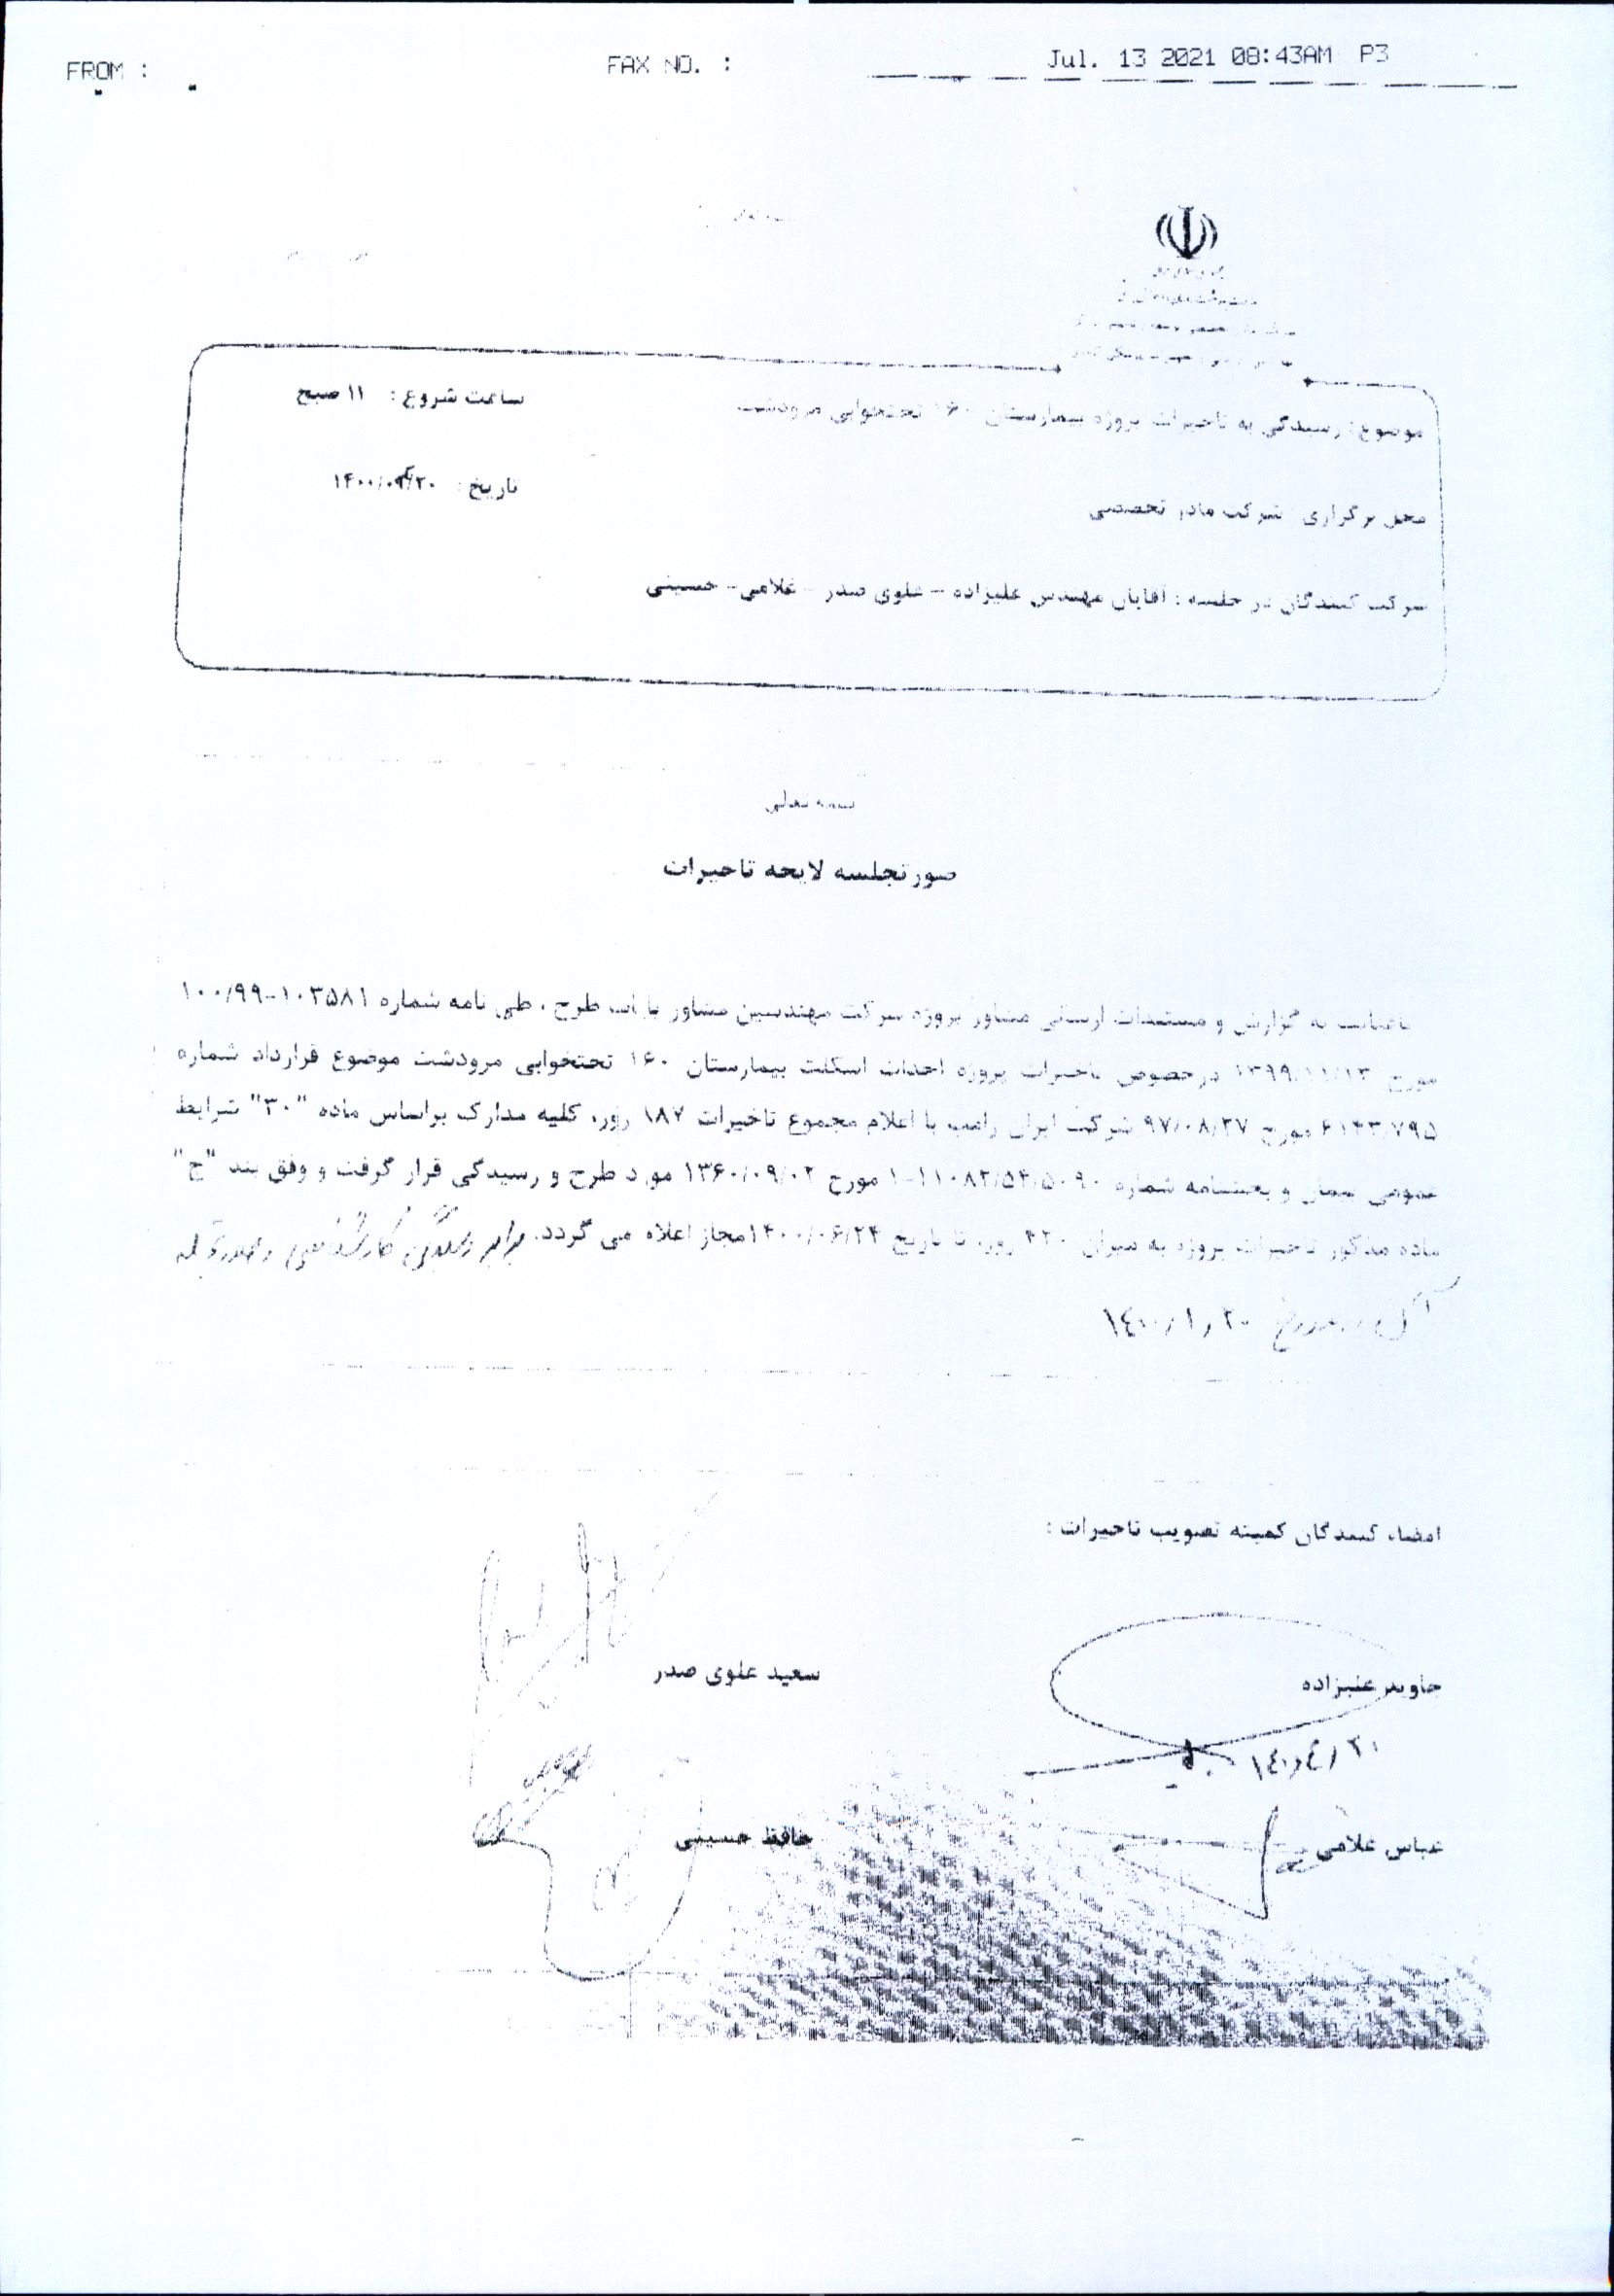 FROM :
FAX NO. :
Jul. 13 2021 08:43AM P3
موضوع: رسیدگی به تاخیرات پروژه بیمارستان ۱۶۰ تختخوابی مرودشت
ساعت شروع : ۱۱ صبح
محل برگزاری شرکت مادر تخصصی
تاریخ : ۱۴۰۰/۰۴/۲۰
شرکت کنندگان در جلسه : آقایان مهندس علیزاده - علوی صدر - غلامی - حسینی
بسمه تعالی
صورتجلسه لایحه تاخیرات
باعنایت به گزارش و مستندات ارسالی مشاور پروژه شرکت مهندسین مشاور طرح ، طی نامه شماره ۱۰۰/۹۹-۱۰۳۵۸۱
مورخ ۱۳۹۹/۱۱/۱۳ درخصوص تاخیرات پروژه احداث اسکلت بیمارستان ۱۶۰ تختخوابی مرودشت موضوع قرارداد شماره
مورخ ۹۷/۰۸/۲۷ شرکت ایران رامب با اعلام مجموع تاخیرات ۱۸۷ روز، کلیه مدارک براساس ماده "۳۰" شرایط
عمومی پیمان و بخشنامه شماره ۱-۱۱۰۸۲/۵۴/۵۰۹۰ مورخ ۱۳۶۰/۰۹/۰۲ مورد طرح و رسیدگی قرار گرفت و وفق بند "ج"
ماده مذکور تاخیرات پروژه به میزان ۲۲۰ روز، تا تاریخ ۱۴۰۰/۰۶/۲۴ مجاز اعلام می گردد. برابر رسیدگی کارشناسی و صورتجلسه
مورخ ۱۴۰۰/۱/۲۰
امضاء کنندگان کمیته تصویب تاخیرات :
جاوید علیزاده
سعید علوی صدر
۱۴۰۰/۴/۲۰
عباس غلامی
حافظ حسینی